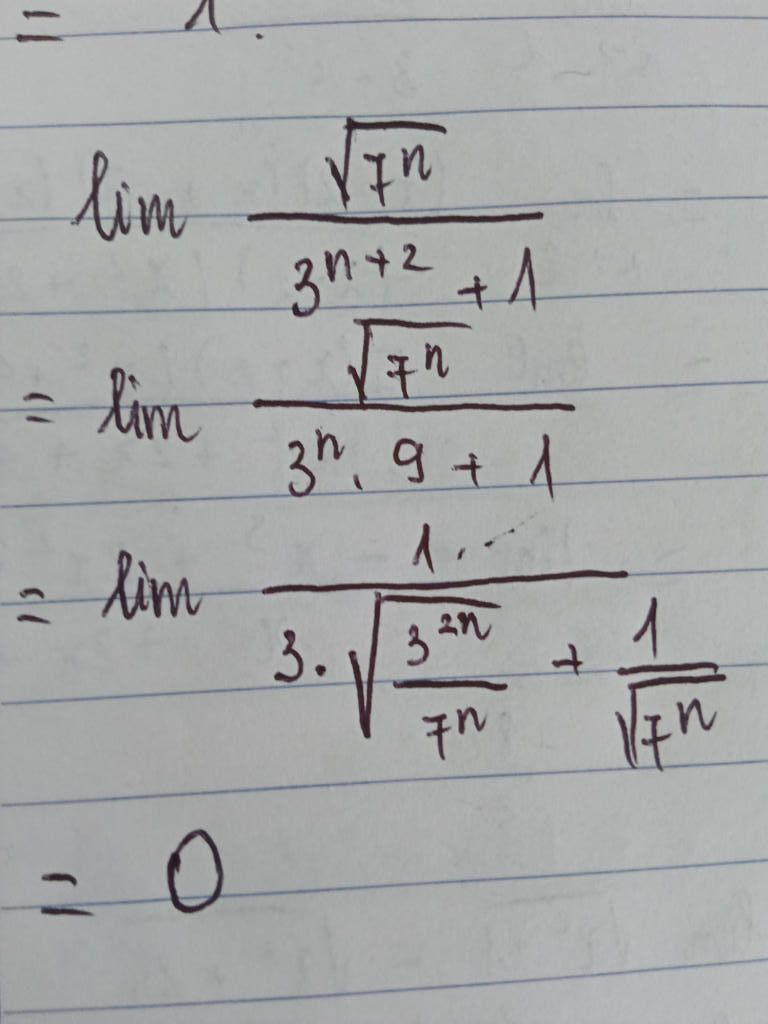 = 1.
lim \frac{\sqrt{7^n}}{3^{n+2} + 1}
= lim \frac{\sqrt{7^n}}{3^n . 9 + 1}
= lim \frac{1.}{3. \sqrt{\frac{3^{2n}}{7^n}} + \frac{1}{\sqrt{7^n}}}
= 0